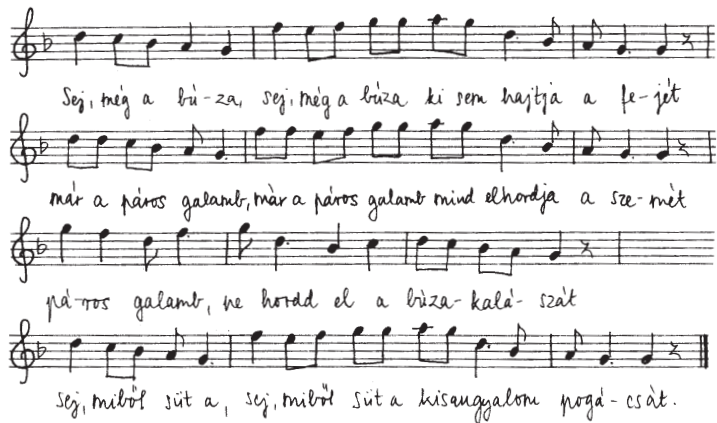 Sej, még a bú-za, sej, még a búza ki sem hajtja a fe-jét
már a páros galamb, már a páros galamb mind elhordja a sze-mét
pá-ros galamb, ne hordd el a búza-kalá-szát
sej, miből süt a, sej, miből süt a kisangyalom pogá-csát.